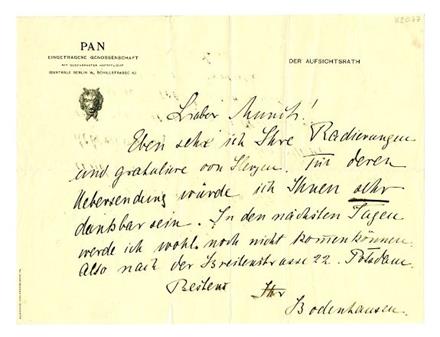 K2077
PAN
EINGETRAGENE GENOSSENSCHAFT
MIT BESCHRÄNKTER HAFTPFLICHT
(CENTRALE BERLIN W., SCHILLSTRASSE
DER AUFSICHTSRATH
Lieber Munch!
Eben sehe ich Ihre Radierungen
und gratuliere von Herzen. Für deren
Uebersendung würde ich Ihnen sehr
dankbar sein. In den nächsten Tagen
werde ich wohl noch nicht kommen können.
Also nach der Breitenstrasse 22. Potsdam.
Bestens Ihr
Bodenhausen.